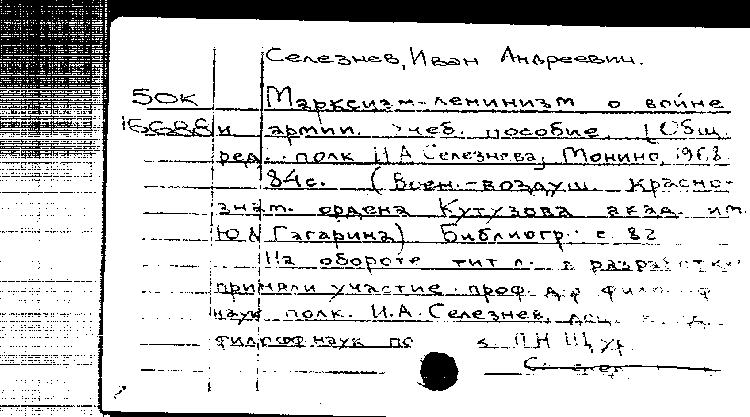 Селезнев, Иван Андреевич.
50к Марксизм-ленинизм о войне
16688 и армии. Учеб. пособие. [Общ.
ред. полк И А Селезнева, Монино, 1968
84с. (Воен.-воздуш. Красно-
знам. ордена Кутузова акад. им.
Ю А Гагарина) Библиогр.: с. 82
На обороте тит л. в разработке
приняли участие. проф. д-р
наук полк. И.А. Селезнев,
философ наук